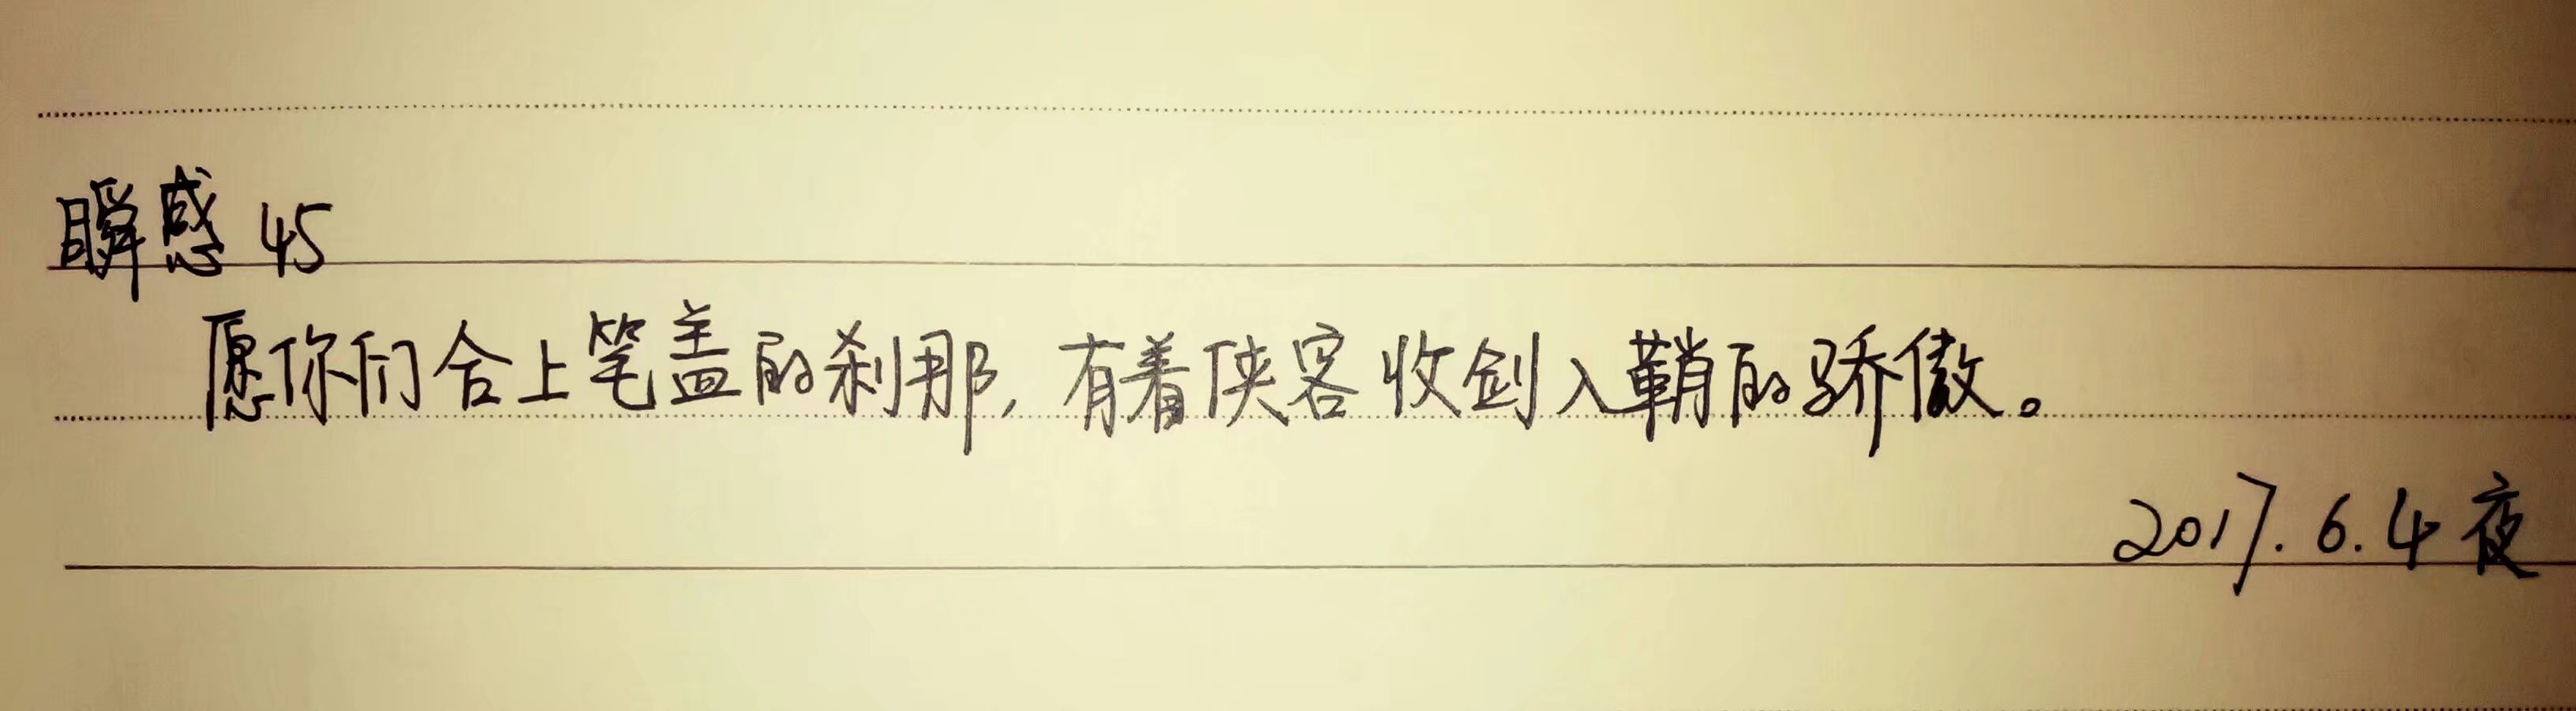 瞬感 45
愿你们合上笔盖的刹那，有着侠客收剑入鞘的骄傲。
2017.6.4 夜